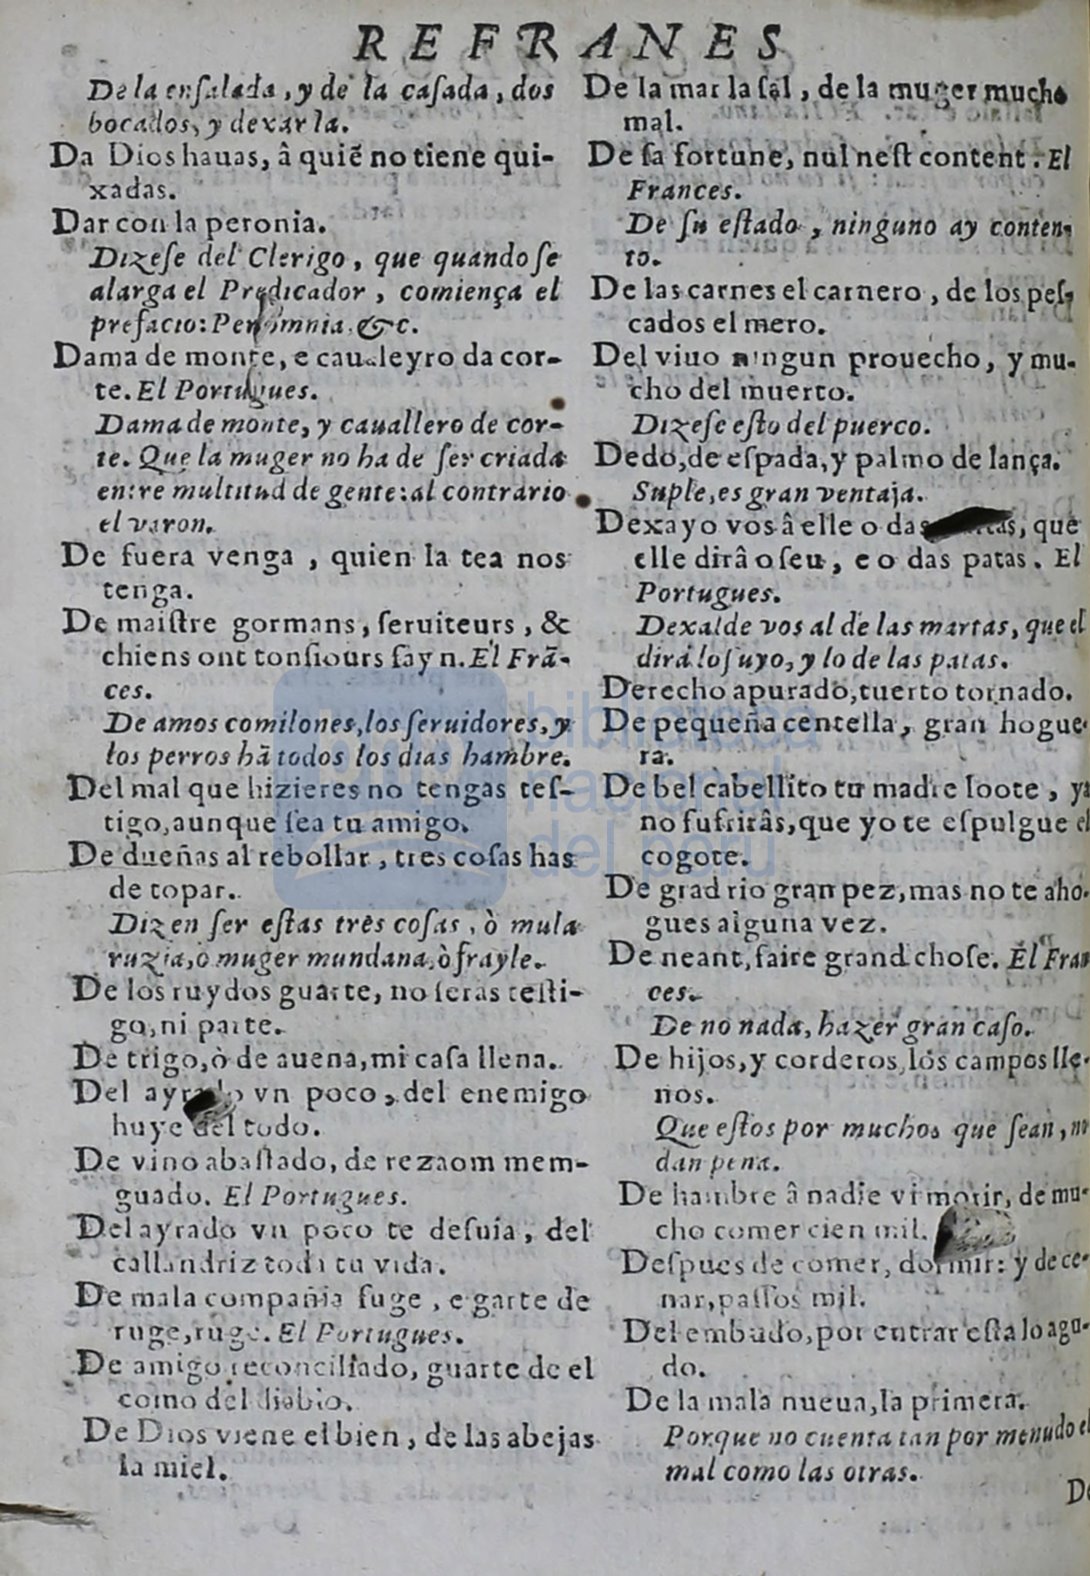 REFRANES
De la enſalada, y de la caſada, dos
bocados, y dexarla.
Da Dios hauas, â quiẽ no tiene qui-
xadas.
Dar con la peronia.
Dizeſe del Clerigo, que quando ſe
alarga el Predicador, comiença el
prefacio: Per omnia. &c.
Dama de monte, e caualeyro da cor-
te. El Portugues.
Dama de monte, y cauallero de cor-
te. Que la muger no ha de ſer criada
entre multitud de gente: al contrario
el varon.
De fuera venga, quien la tea nos
tenga.
De maiſtre gormans, ſeruiteurs, &
chiens ont tonſiours fayn. El Frã-
ces.
De amos comilones, los ſeruidores, y
los perros hã todos los dias hambre.
Del mal que hizieres no tengas teſ-
tigo, aunque ſea tu amigo.
De dueñas al rebollar, tres coſas has
de topar.
Dizen ſer eſtas tres coſas, ò mula
ruzia, ò muger mundana, ò frayle.
De los ruydos guarte, no ſeras teſti-
go, ni parte.
De trigo, ò de auena, mi caſa llena.
Del ayrado vn poco, del enemigo
huye del todo.
De vino abaſtado, de rezaom mem-
guado. El Portugues.
Del ayrado vn poco te deſuia, del
callandriz toda tu vida.
De mala compañia fuge, e garte de
ruge, ruge. El Portugues.
De amigo reconciliado, guarte de el
como del diablo.
De Dios viene el bien, de las abejas
la miel.
De la mar la ſal, de la muger mucho
mal.
De ſa fortune, nul neſt content. El
Frances.
De ſu eſtado, ninguno ay conten-
to.
De las carnes el carnero, de los peſ-
cados el mero.
Del viuo ningun prouecho, y mu-
cho del muerto.
Dizeſe eſto del puerco.
Dedo, de eſpada, y palmo de lança.
Suple, es gran ventaja.
Dexayo vos â elle o das, que
elle dirâ o ſeu, e o das patas. El
Portugues.
Dexalde vos al de las martas, que el
dirá lo ſuyo, y lo de las patas.
Derecho apurado, tuerto tornado.
De pequeña centella, gran hogue-
ra.
De bel cabellito tu madre loote, ya
no fufrirâs, que yo te eſpulgue el
cogote.
De grad rio gran pez, mas no te aho-
gues alguna vez.
De neant, faire grand choſe. El Fran
ces.
De no nada, hazer gran caſo.
De hijos, y corderos, los campos lle-
nos.
Que eſtos por muchos que ſean, no
dan pena.
De hambre â nadie vi morir, de mu-
cho comer cien mil.
Deſpues de comer, dormir: y de ce-
nar, paſſos mil.
Del embudo, por entrar eſta lo agu-
do.
De la mala nueua, la primera.
Porque no cuenta tan por menudo el
mal como las otras.
De
biblioteca
nacional
del perú